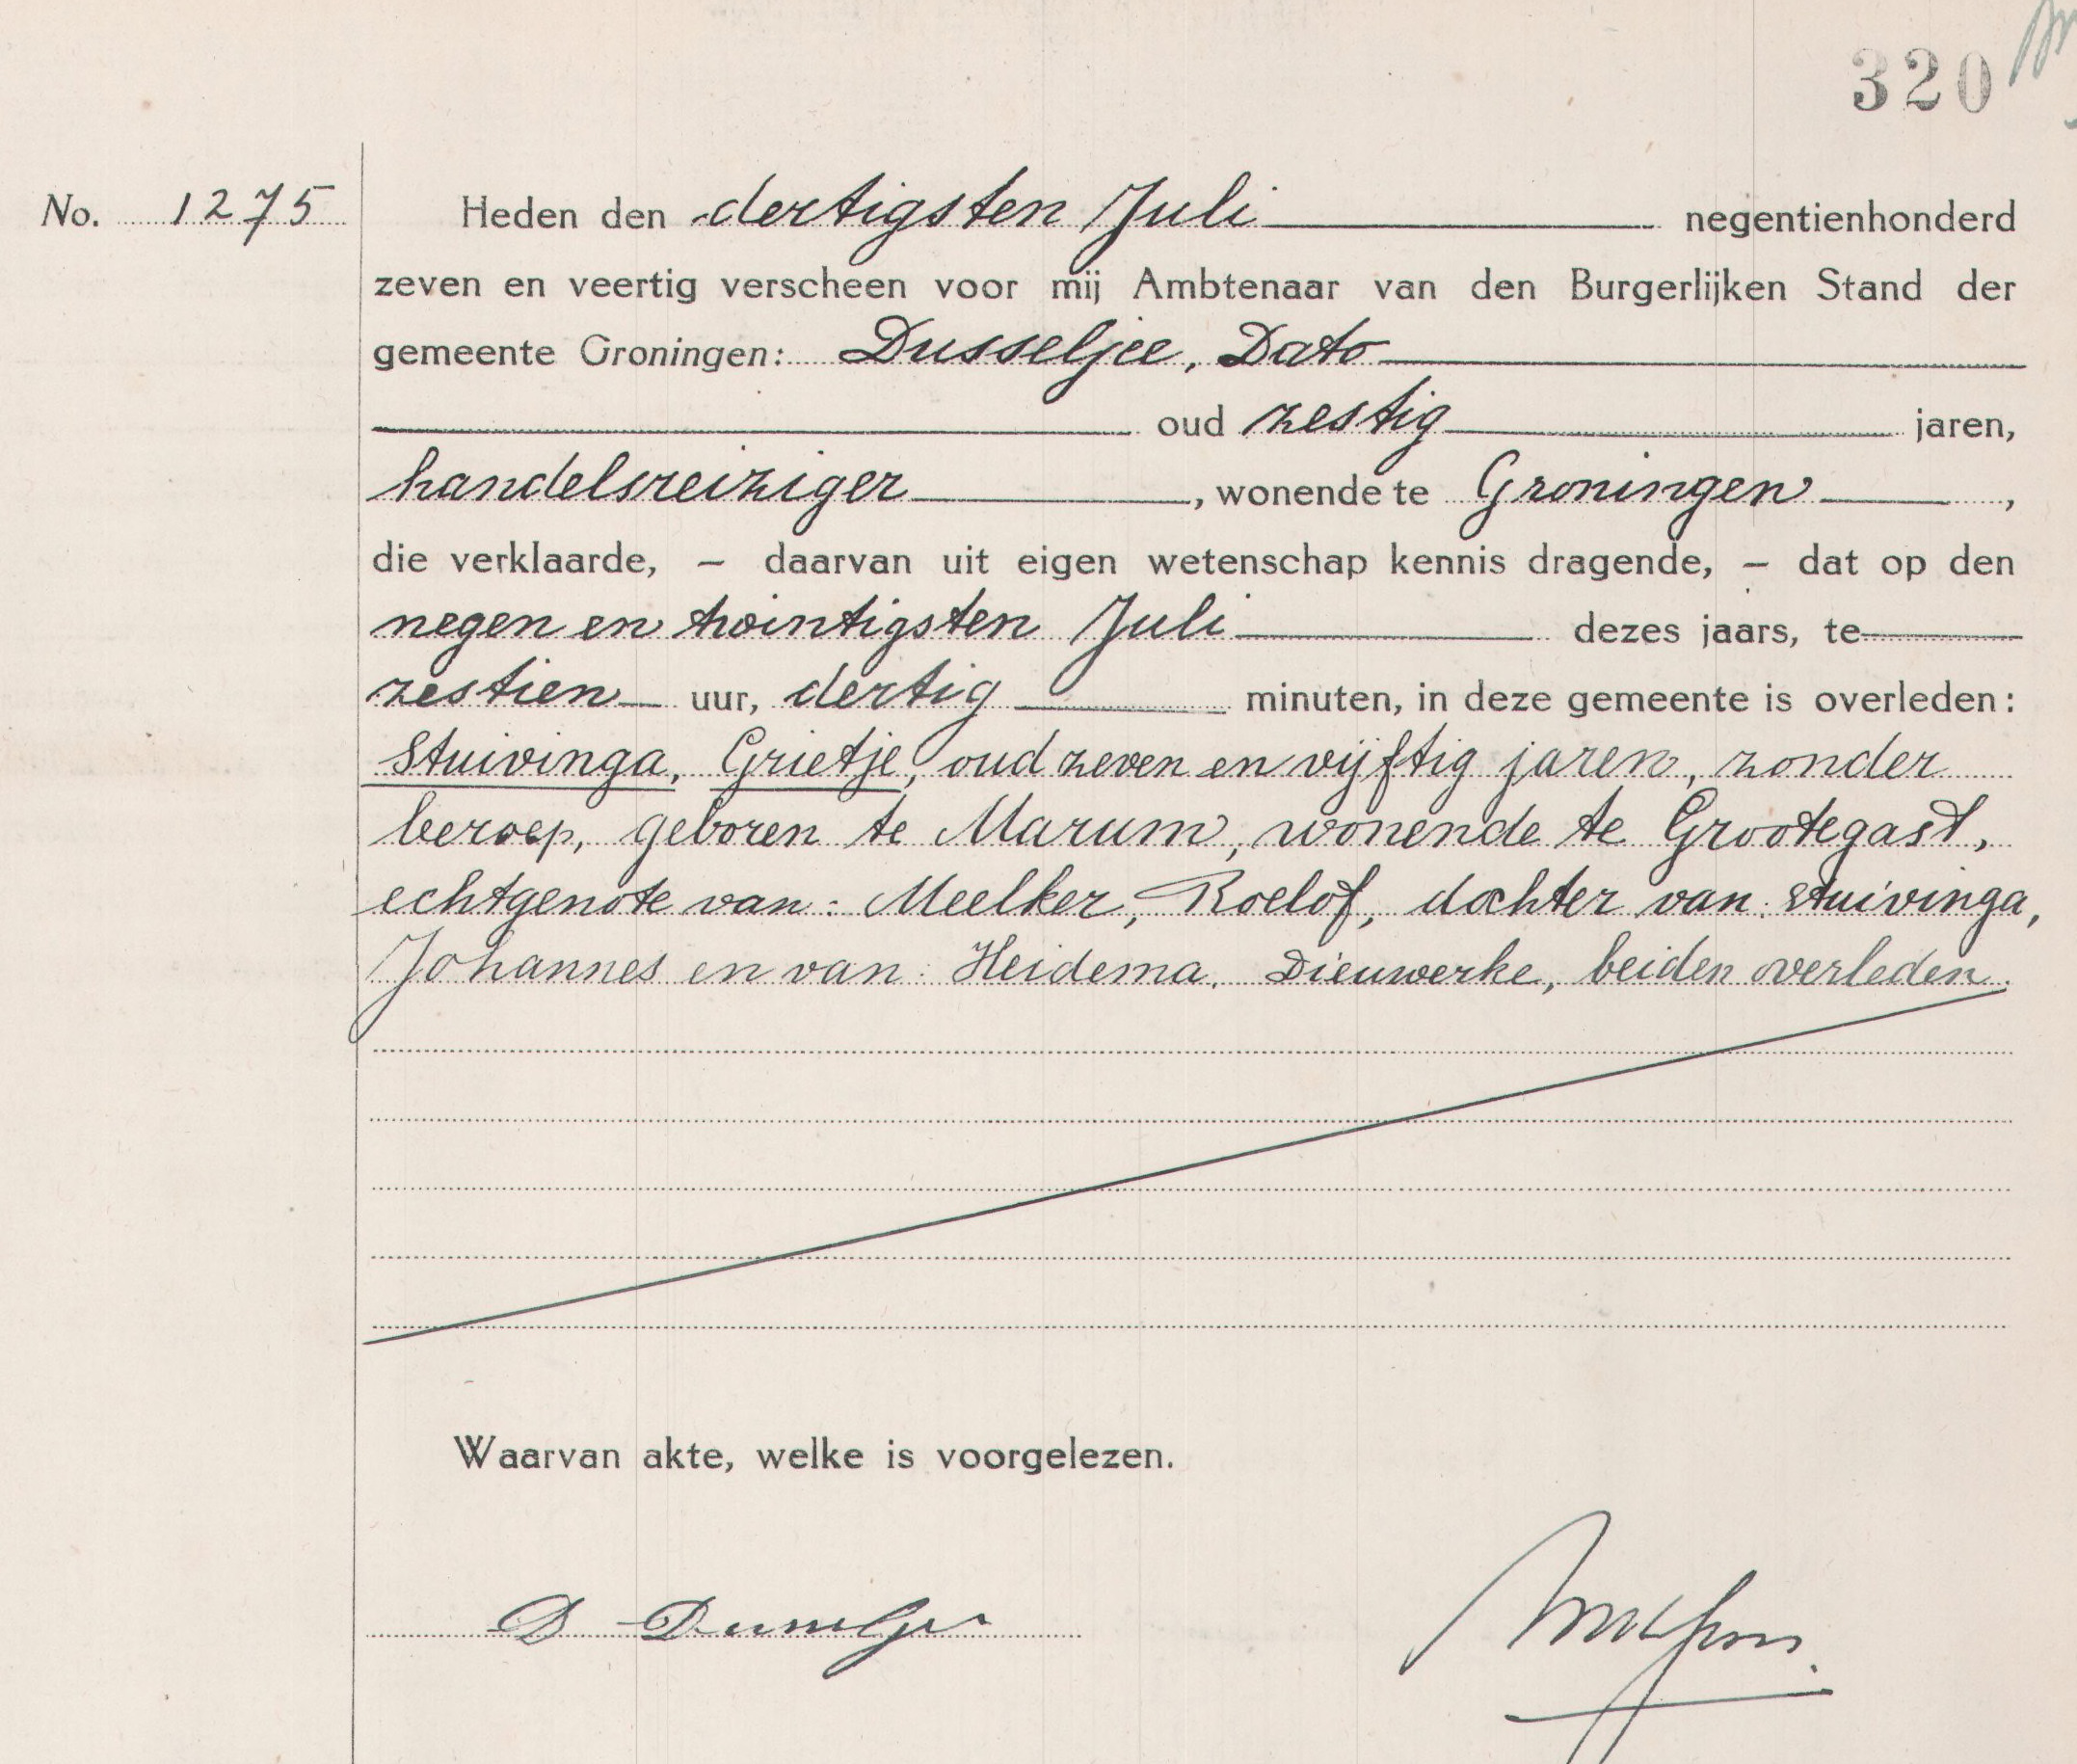 320
No. 1275
Heden den dertigsten Juli negentienhonderd
zeven en veertig verscheen voor mij Ambtenaar van den Burgerlijken Stand der
gemeente Groningen: Dusseljee, Dato
oud zestig jaren,
handelsreiziger, wonende te Groningen,
die verklaarde, – daarvan uit eigen wetenschap kennis dragende, – dat op den
negen en twintigsten Juli dezes jaars, te
zestien uur, dertig minuten, in deze gemeente is overleden:
Stuivinga, Grietje, oud zeven en vijftig jaren, zonder
beroep, geboren te Marum, wonende te Grootegast,
echtgenote van: Meelker, Roelof, dochter van: Stuivinga,
Johannes en van: Heidema, Dieuwerke, beiden overleden.
Waarvan akte, welke is voorgelezen.
D Dusseljee